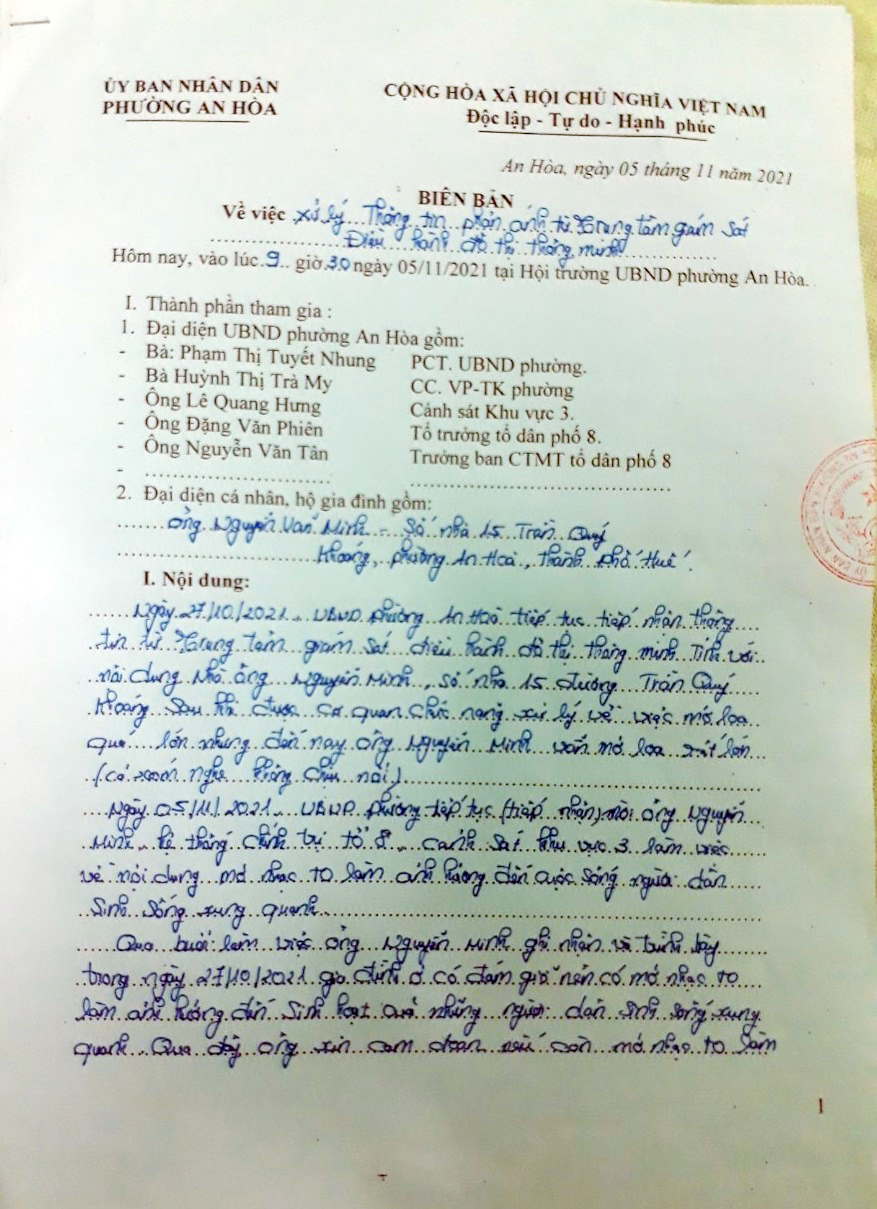 ỦY BAN NHÂN DÂN
PHƯỜNG AN HÒA
CỘNG HÒA XÃ HỘI CHỦ NGHĨA VIỆT NAM
Độc lập - Tự do - Hạnh phúc
An Hòa, ngày 05 tháng 11 năm 2021
BIÊN BẢN
Về việc xử lý Thông tin phản ánh từ Trung tâm giám sát
Điều hành đô thị thông minh
Hôm nay, vào lúc 9 giờ 30 ngày 05/11/2021 tại Hội trường UBND phường An Hòa.
I. Thành phần tham gia :
1. Đại diện UBND phường An Hòa gồm:
- Bà: Phạm Thị Tuyết Nhung PCT. UBND phường.
- Bà Huỳnh Thị Trà My CC. VP-TK phường
- Ông Lê Quang Hưng Cảnh sát Khu vực 3.
- Ông Đặng Văn Phiên Tổ trưởng tổ dân phố 8.
- Ông Nguyễn Văn Tân Trưởng ban CTMT tổ dân phố 8
-
2. Đại diện cá nhân, hộ gia đình gồm:
Ông Nguyễn Văn Minh - Số nhà 15 Trần Quý
Khoáng, phường An Hoà, thành phố Huế.
I. Nội dung:
Ngày 27/10/2021, UBND phường An Hoà tiếp tục tiếp nhận thông
tin từ Trung tâm giám sát điều hành đô thị thông minh Tỉnh với
nội dung Nhà ông Nguyễn Minh, số nhà 15 đường Trần Quý
Khoáng sau khi được cơ quan chức năng xử lý về việc mở loa
quá lớn nhưng đến nay ông Nguyễn Minh vẫn mở loa rất lớn
nghe không chịu nổi)
Ngày 05/11/2021, UBND phường tiếp tục (tiếp nhận) mời ông Nguyễn
Minh, hệ thống chính trị tổ 8, cảnh sát khu vực 3 làm việc
về nội dung mở nhạc to làm ảnh hưởng đến cuộc sống người dân
sinh sống xung quanh.
Qua buổi làm việc ông Nguyễn Minh ghi nhận và trình bày
trong ngày 27/10/2021 gia đình có đám giỗ nên có mở nhạc to
làm ảnh hưởng đến sinh hoạt của những người dân sinh sống xung
quanh. Qua đây ông xin cam đoan nếu còn mở nhạc to làm
1